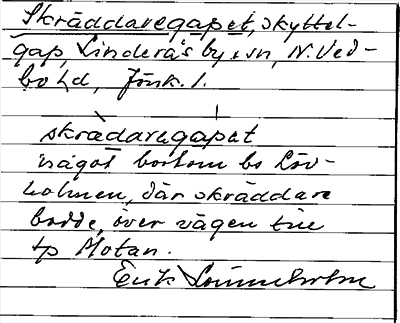 Skräddaregapet, skyttel-
gap, Linderås by, sn, N. Ved-
bo hd, Jönk. l.
skrädaregapat
något bortom bs Löv-
holmen, där skräddare
bodde, över vägen till
tp Motan.
Erik